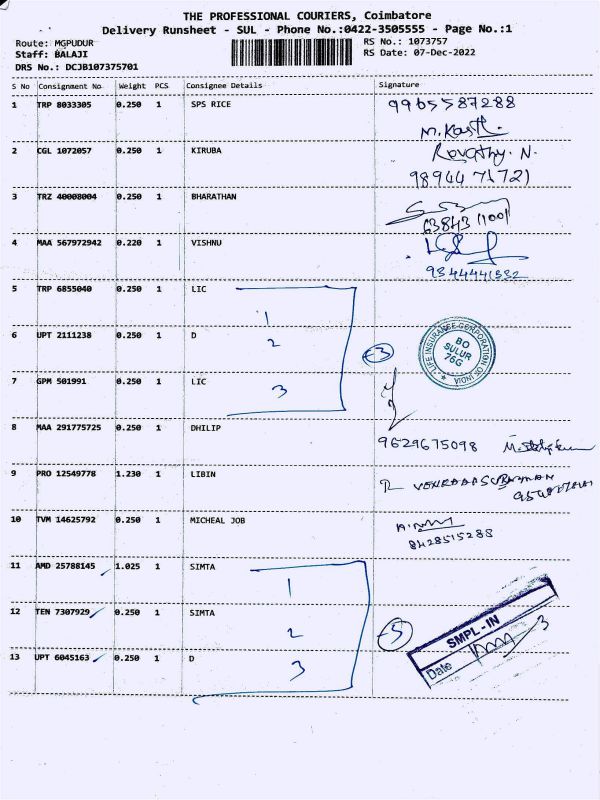 THE PROFESSIONAL COURIERS, Coimbatore
Delivery Runsheet - SUL - Phone No.:0422-3505555 - Page No.:1
Route: MGPUDUR
RS No.: 1073757
Staff: BALAJI
RS Date: 07-Dec-2022
DRS No.: DCJB107375701
S No Consignment No Weight PCS Consignee Details Signature
1 TRP 8033305 0.250 1 SPS RICE 9965587288
2 CGL 1072057 0.250 1 KIRUBA Revathy. N.
3 TRZ 40008004 0.250 1 BHARATHAN
4 MAA 567972942 0.220 1 VISHNU
5 TRP 6855040 0.250 1 LIC
1
6 UPT 2111238 0.250 1 D
2
-3
LIFE INSURANCE CORPORATION OF INDIA
BO
SULUR
76G
7 GPM 501991 0.250 1 LIC
3
8 MAA 291775725 0.250 1 DHILIP
9629675098
9 PRO 12549778 1.230 1 LIBIN
10 TVM 14625792 0.250 1 MICHEAL JOB
8428515288
11 AMD 25788145 1.025 1 SIMTA
1
12 TEN 7307929 0.250 1 SIMTA
2
SMPL-IN
3
Date
13 UPT 6045163 0.250 1 D
3